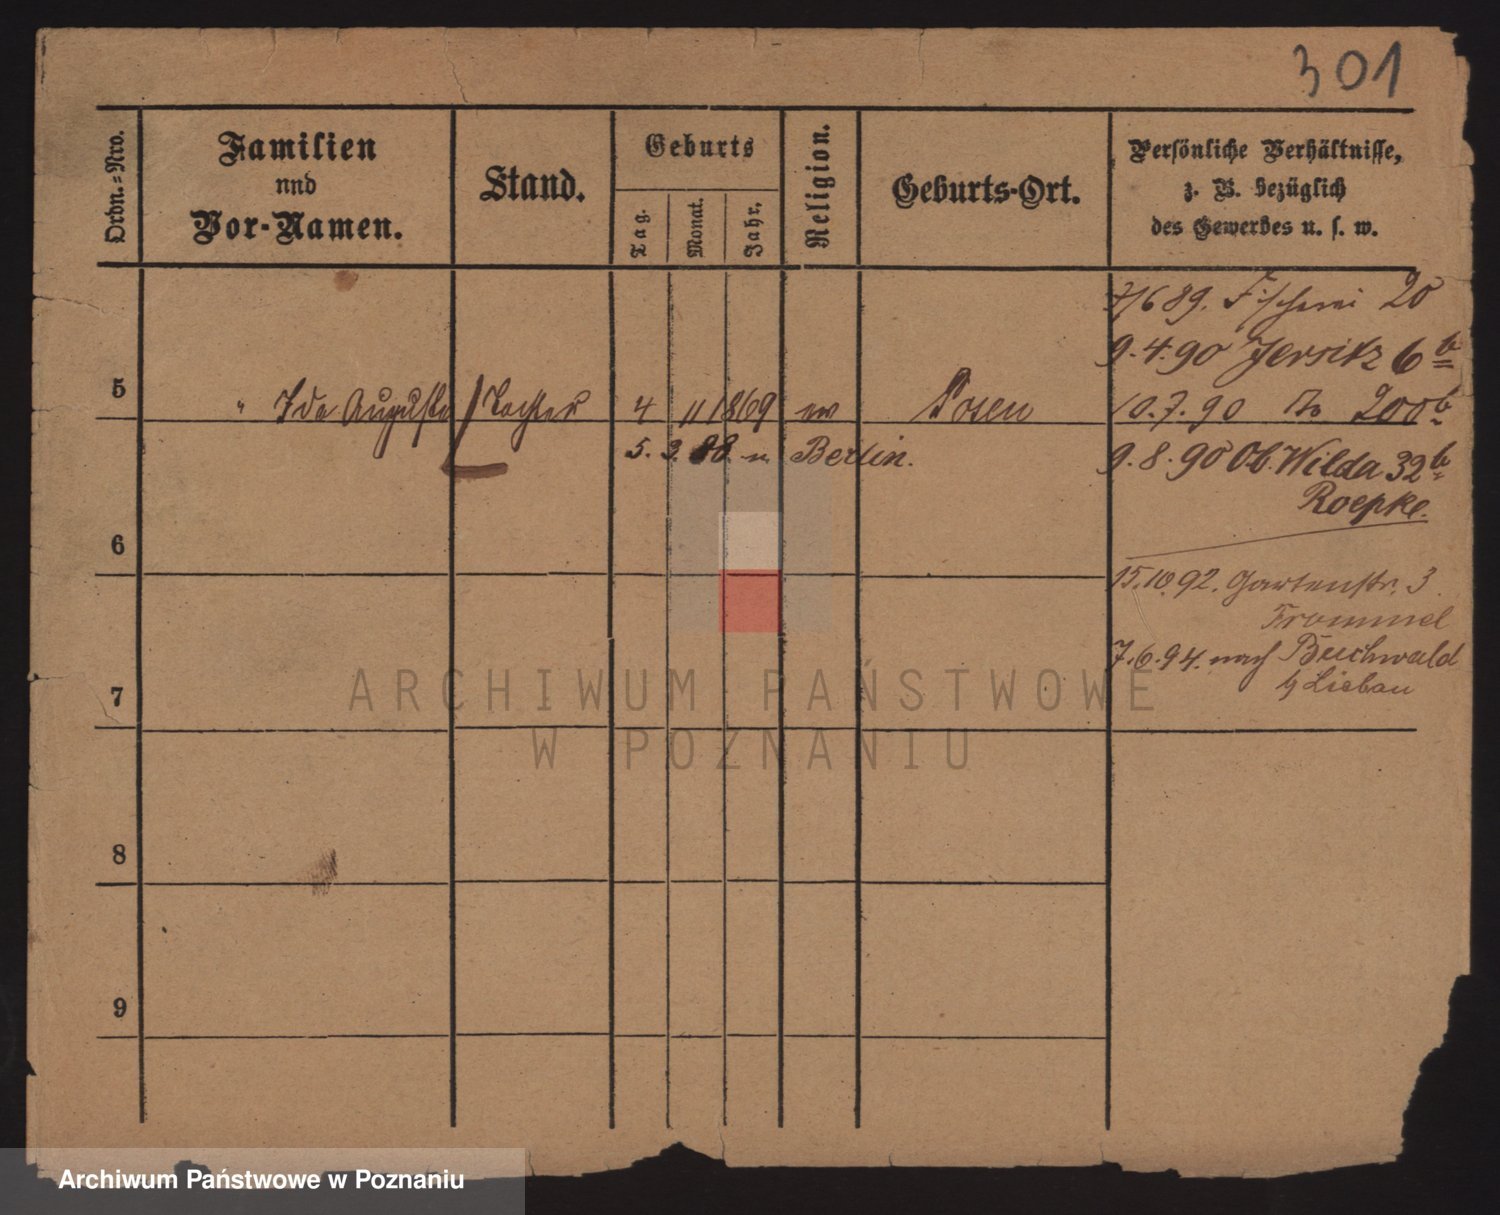 301
Ordn.-Nro.
Familien
und
Vor-Namen.
Stand.
Geburts
Tag.
Monat.
Jahr.
Religion.
Geburts-Ort.
Persönliche Verhältnisse,
z. B. bezüglich
des Gewerbes u. s. w.
7/6 89. Fischerei 20
9.4.90 Jersitz 6b
5 " Ida Auguste Tochter 4 11 1869 ev Posen
10.7.90 200b
5. 3. 88 n. Berlin.
9.8.90 Ob. Wilda 32b
Roepke.
6
15.10.92. Gartenstr. 3
Frommel
7.6.94. nach Buchwald
b/ Liebau
7
8
9
ARCHIWUM PAŃSTWOWE
W POZNANIU
Archiwum Państwowe w Poznaniu